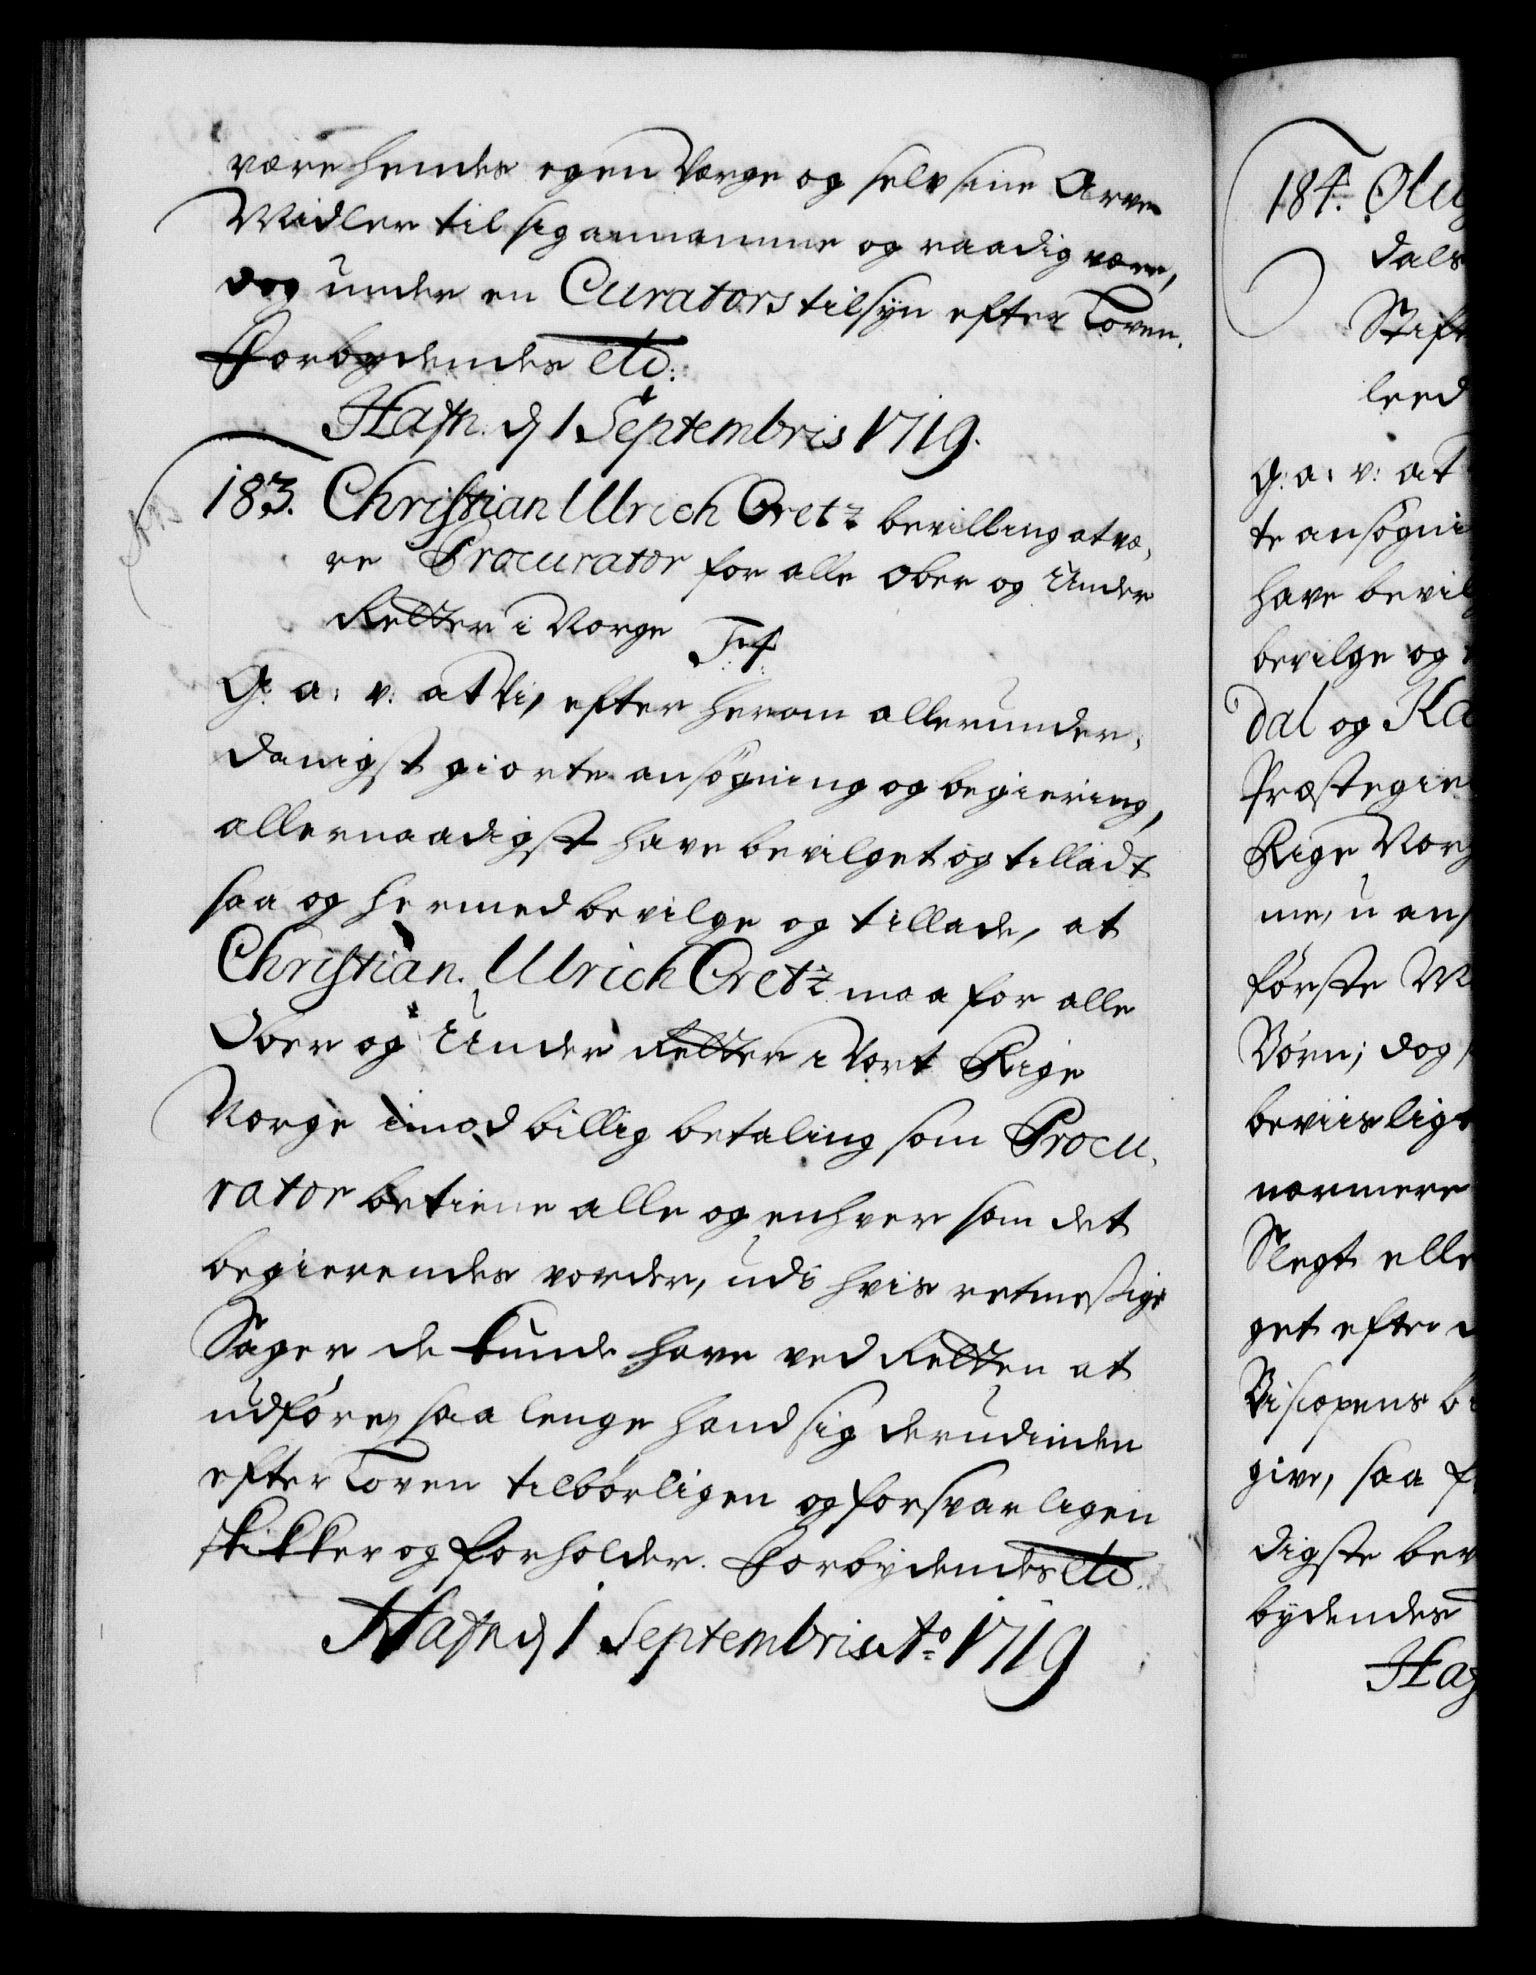 være hendes egen Værge og selv sine Arve
Midler til sig annamme og raadig være,
dog under en Curators tilsyn efter Loven.
Forbydendes etc:
Hafn. d 1 Septembris 1719.
183. Christian Ulrich Gretz bevilling at væ,
re Procurator for alle Ober og Under
Retter i Norge
G: a: v: at Vi, efter herom allerunder,
danigst giorte ansögning og begiering,
allernaadigst have bevilget og tilladt
saa og hermed bevilge og tillade, at
Christian Ulrich Gretz maa for alle
Ober og Under Retter i Vort Rige
Norge imod billig betaling som Procu,
rator betiene alle og enhver som det
begierendes vorder, udi hvis retmessige
Sager de kunde have ved Retten at
udføre, saa lenge hand sig derudinden
efter Loven tilbørligen og forsvarligen
skikker og forholder. Forbydendes etc.
Hafn d 1 Septembris Ao 1719
184. Oluf
dals
Stift
leed
G: a: v: at
te ansøgni
have bevil
bevilge og
dal og Ka
Præstegie
Rige Norg
me, u ans
første M
Børn; dog
beviislig
nærmere
Slegt elle
get efter d
Biscopens b
give, saa f
digste bev
bydendes
Haf